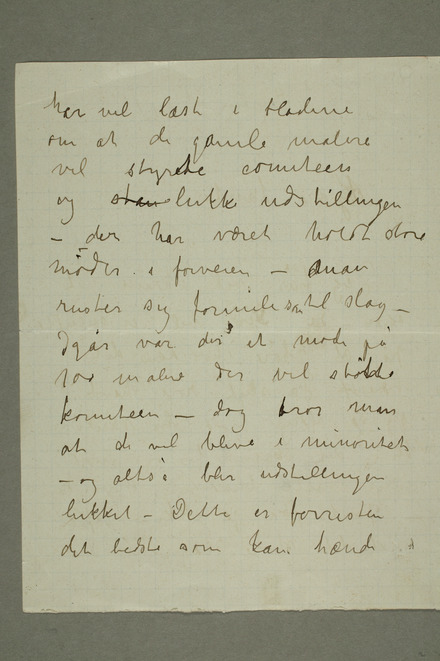 har vel læst i bladene
om at de gamle malere
vil styrte comiteen
og lukke udstillingen
– der har været holdt store
møder i foreren – man
ruster sig formeligt til slag –
Igår var der et møde på
100 malere der vil støtte
komiteen – dog tror man
at de vil blive i minoritet
– og altså blir udstillingen
lukket – Dette er forresten
det bedste som kan hænde